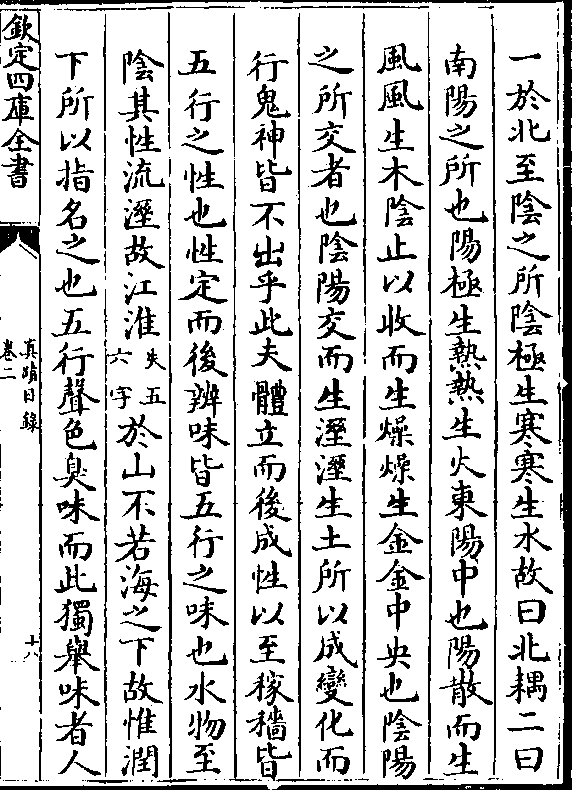 一於北至陰之所陰極生寒寒生水故曰北耦二曰
南陽之所也陽極生熱熱生火東陽中也陽散而生
風風生木陰止以收而生燥燥生金金中央也陰陽
之所交者也陰陽交而生溼溼生土所以成變化而
行鬼神皆不出乎此夫體立而後成性以至稼穡皆
五行之性也性定而後辨味皆五行之味也水物至
陰其性流溼故江淮失五六字於山不若海之下故惟潤
下所以指名之也五行聲色臭味而此獨舉味者人
欽定四庫全書
真蹟日錄
卷二
十八